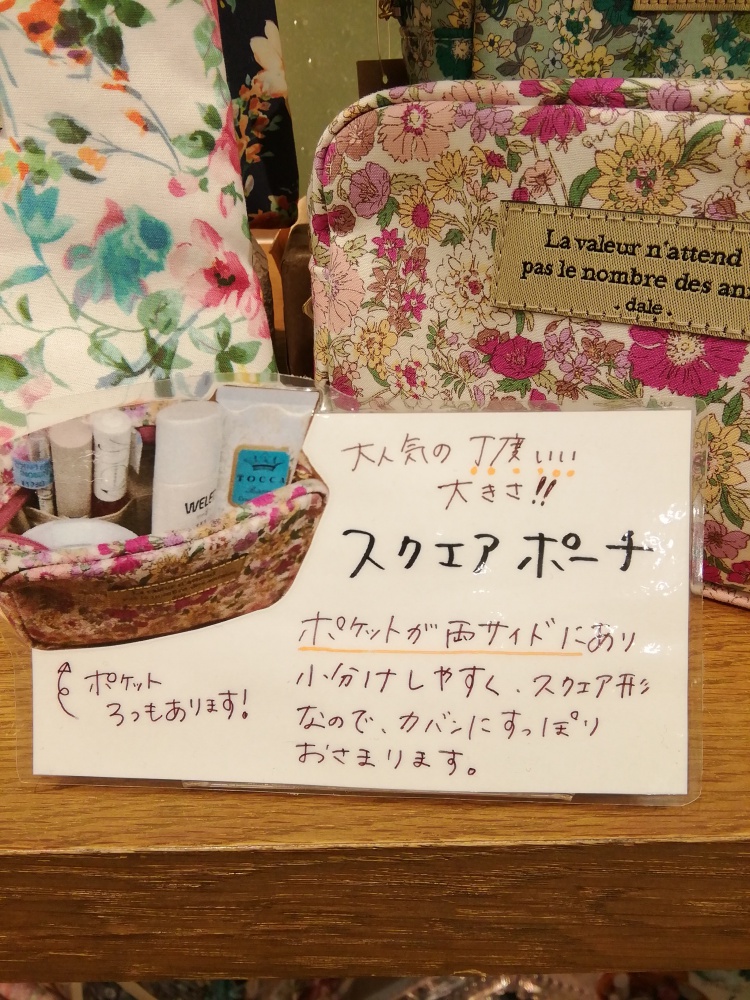 La valeur n'attend
pas le nombre des ann
· dale ·
TOCCA
WELE
大人気の丁度いい
大きさ!!
スクエアポーチ
ポケットが両サイドにあり
小分けしやすく、スクエア形
なので、カバンにすっぽり
おさまります。
ポケット
3つもあります!